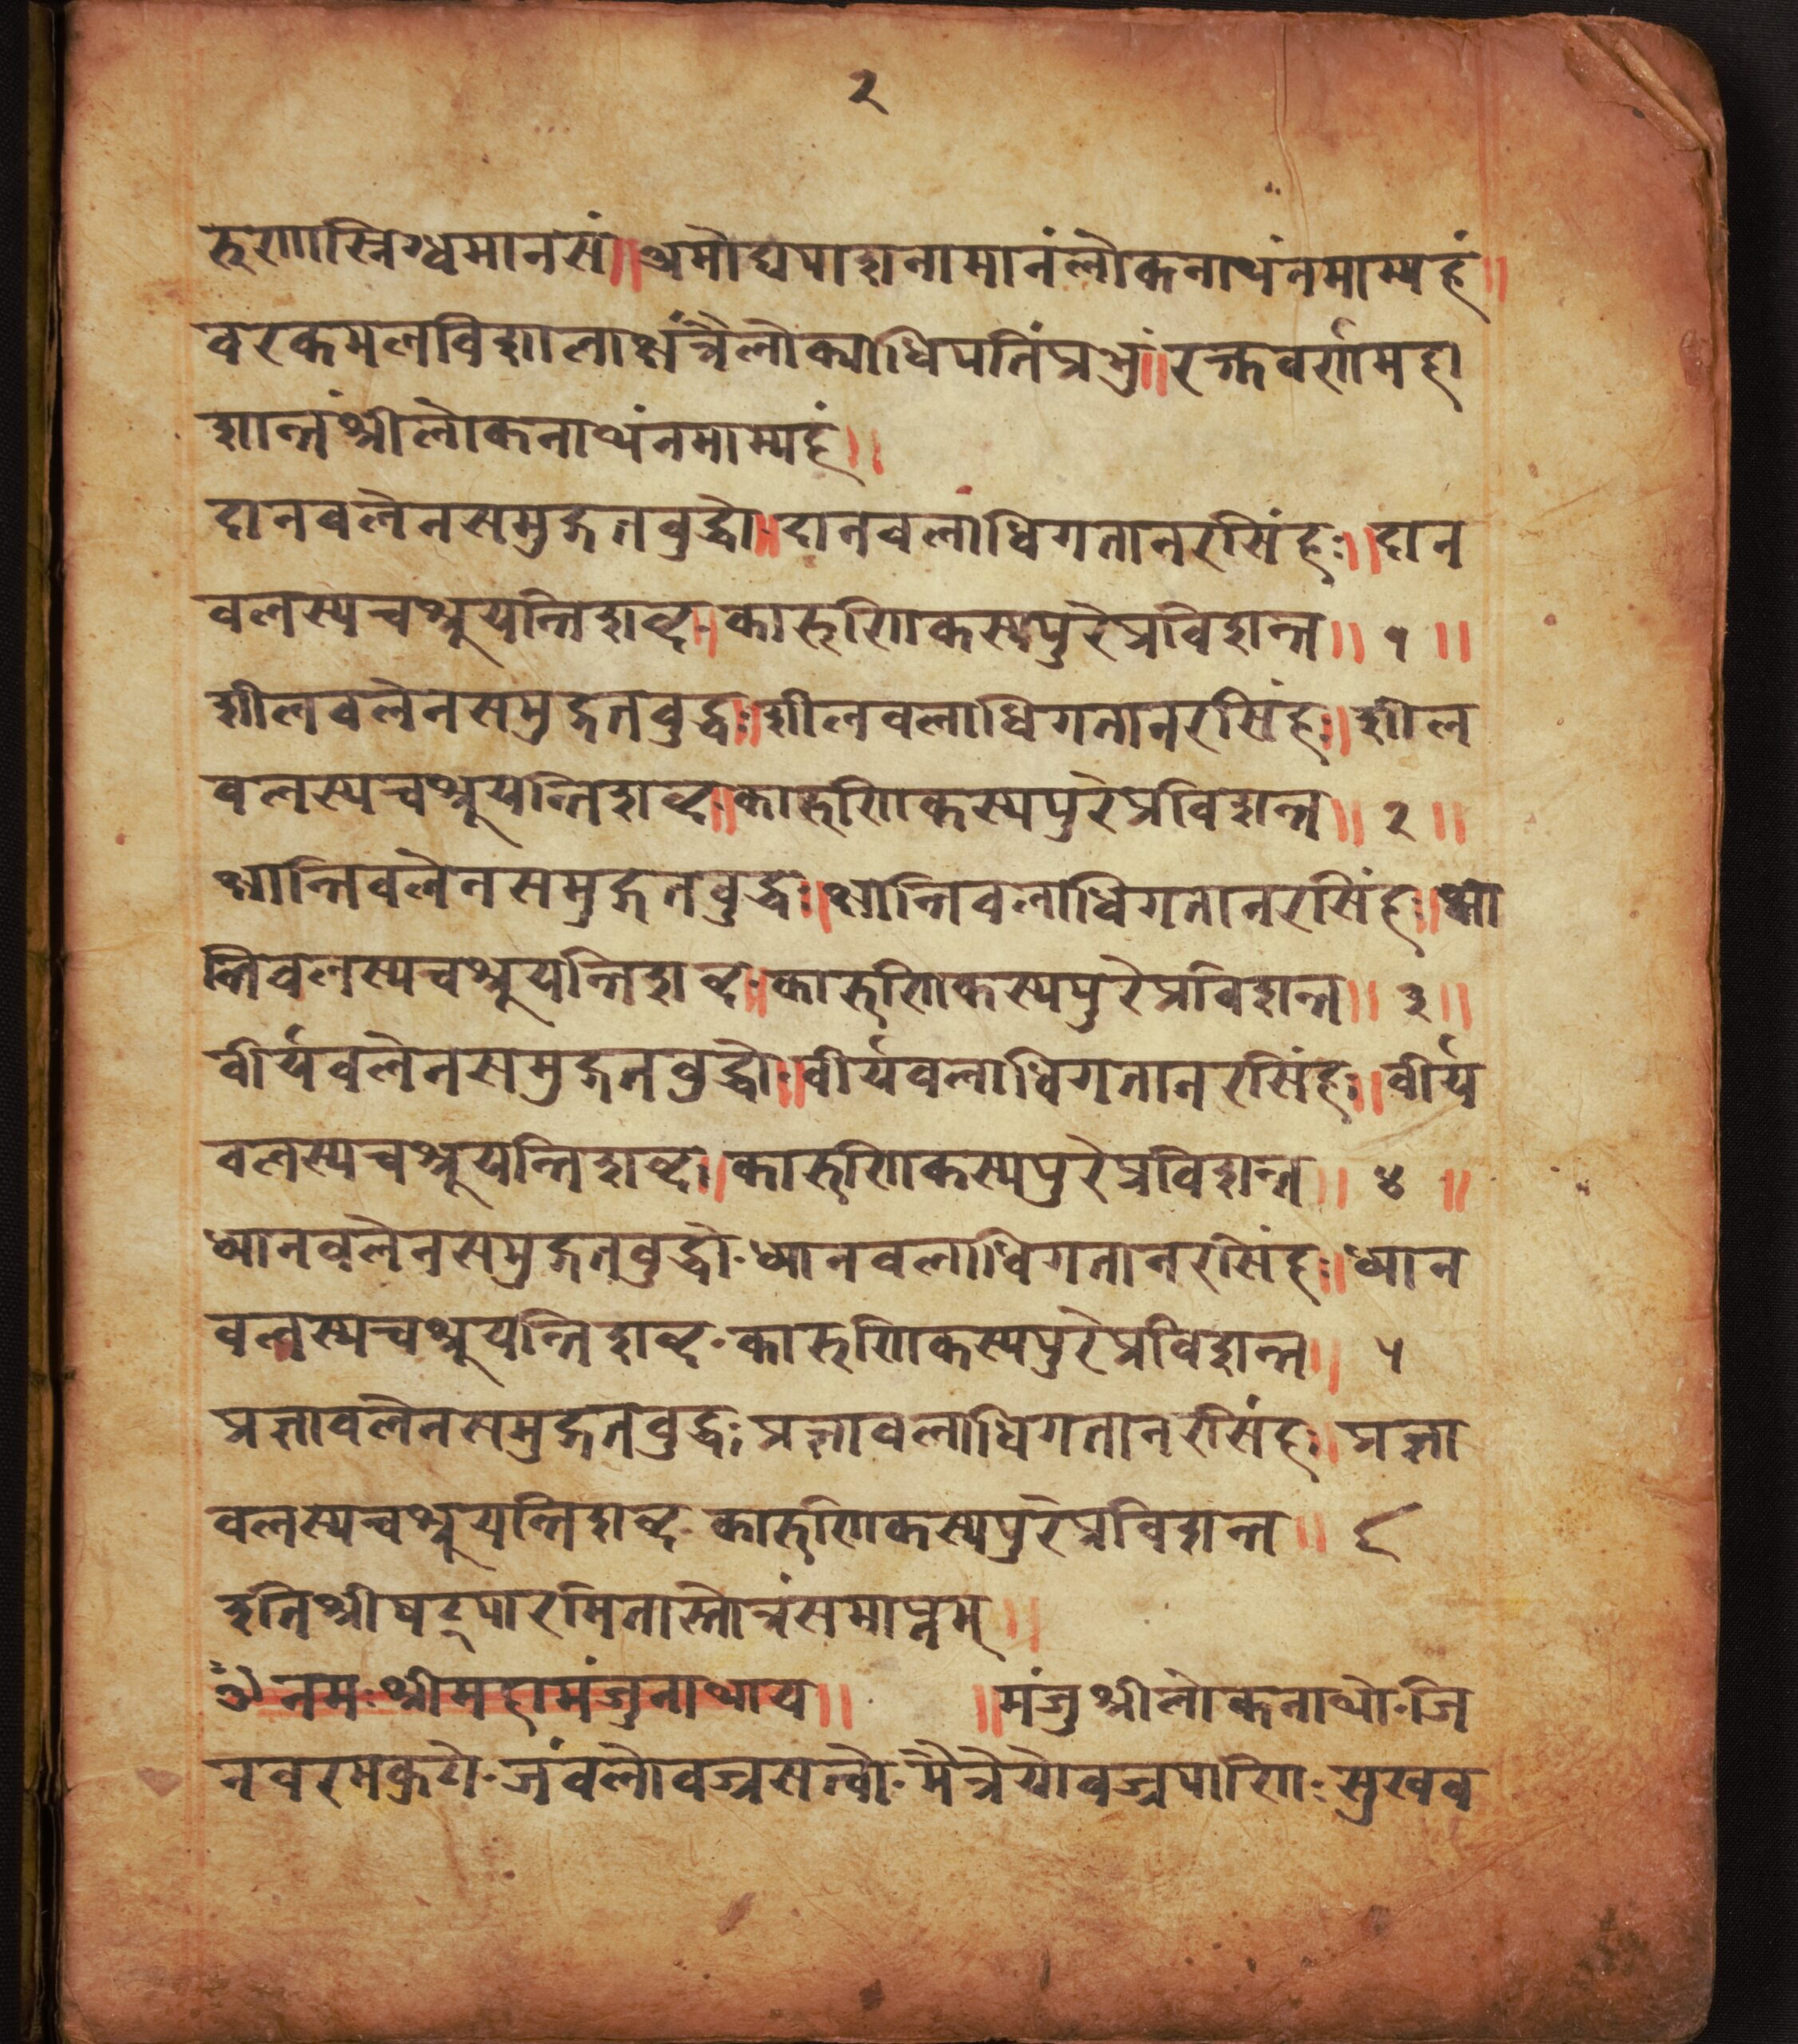 २
रुणास्निग्धमानसं॥अमोघपाशनामानंलोकनाथंनमाम्यहं॥
वरकमलविशालाक्षंत्रैलोक्याधिपतिंप्रभुं॥रक्तवर्णमहा
शान्तंश्रीलोकनाथंनमाम्यहं॥
दानवलेनसमुद्गतवुद्धो॥दानवलाधिगतानरसिंहः॥दान
वलस्यचश्रूयन्तिशब्द॥कारुणिकस्यपुरेप्रविशन्त॥१॥
शीलवलेनसमुद्गतवुद्धः॥शीलवलाधिगतानरसिंहः॥शील
वलस्यचश्रूयन्तिशब्द॥कारुणिकस्यपुरेप्रविशन्त॥२॥
क्षान्तिवलेनसमुद्गतवुद्धः॥क्षान्तिवलाधिगतानरसिंहः॥क्षा
न्तिवलस्यचश्रूयन्तिशब्द॥कारुणिकस्यपुरेप्रविशन्त॥३॥
वीर्यवलेनसमुद्गतवुद्धो॥वीर्यवलाधिगतानरसिंहः॥वीर्य
वलस्यचश्रूयन्तिशब्द॥कारुणिकस्यपुरेप्रविशन्त॥४॥
ध्यानवलेनसमुद्गतवुद्धो·ध्यानवलाधिगतानरसिंहः॥ध्यान
वलस्यचश्रूयन्तिशब्द·कारुणिकस्यपुरेप्रविशन्त॥ ५
प्रज्ञावलेनसमुद्गतवुद्धः प्रज्ञावलाधिगतानरसिंहः॥प्रज्ञा
वलस्यचश्रूयन्तिशब्द·कारुणिकस्यपुरेप्रविशन्त॥ ६
इतिश्रीषट्पारमितास्तोत्रंसमाप्तम्॥
ॐनमःश्रीमहामंजुनाथाय॥ ॥मंजुश्रीलोकनाथो·जि
नवरमकुटो·जंवलोवज्रसत्वो·मैत्रेयोवज्रपाणिःसुखव